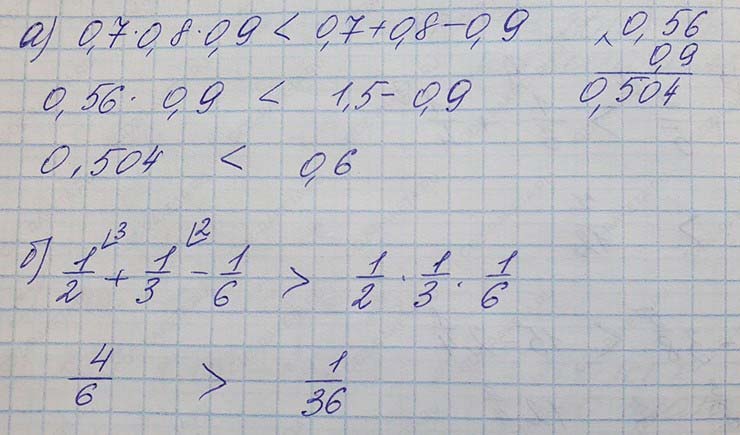 а) 0,7·0,8·0,9 < 0,7+0,8-0,9
0,56· 0,9 < 1,5-0,9
0,504 < 0,6
× 0,56
0,9
0,504
б) 1/2 ⌊3 + 1/3 ⌊2 - 1/6 > 1/2 · 1/3 · 1/6
4/6 > 1/36